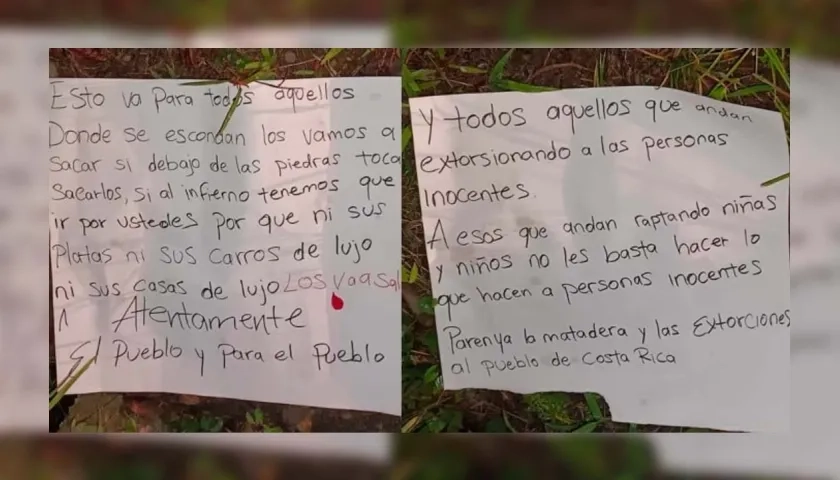 Esto va Para todos aquellos
Donde se escondan los vamos a
sacar si debajo de las piedras toca
sacarlos, si al infierno tenemos que
ir por ustedes por que ni sus
Platas ni sus carros de lujo
ni sus casas de lujo Los va a sal
Atentamente
El Pueblo y Para el Pueblo
y todos aquellos que andan
extorsionando a las personas
inocentes.
A esos que andan raptando niñas
y niños no les basta hacer lo
que hacen a personas inocentes
Paren ya la matadera y las Extorciones
al pueblo de Costa Rica